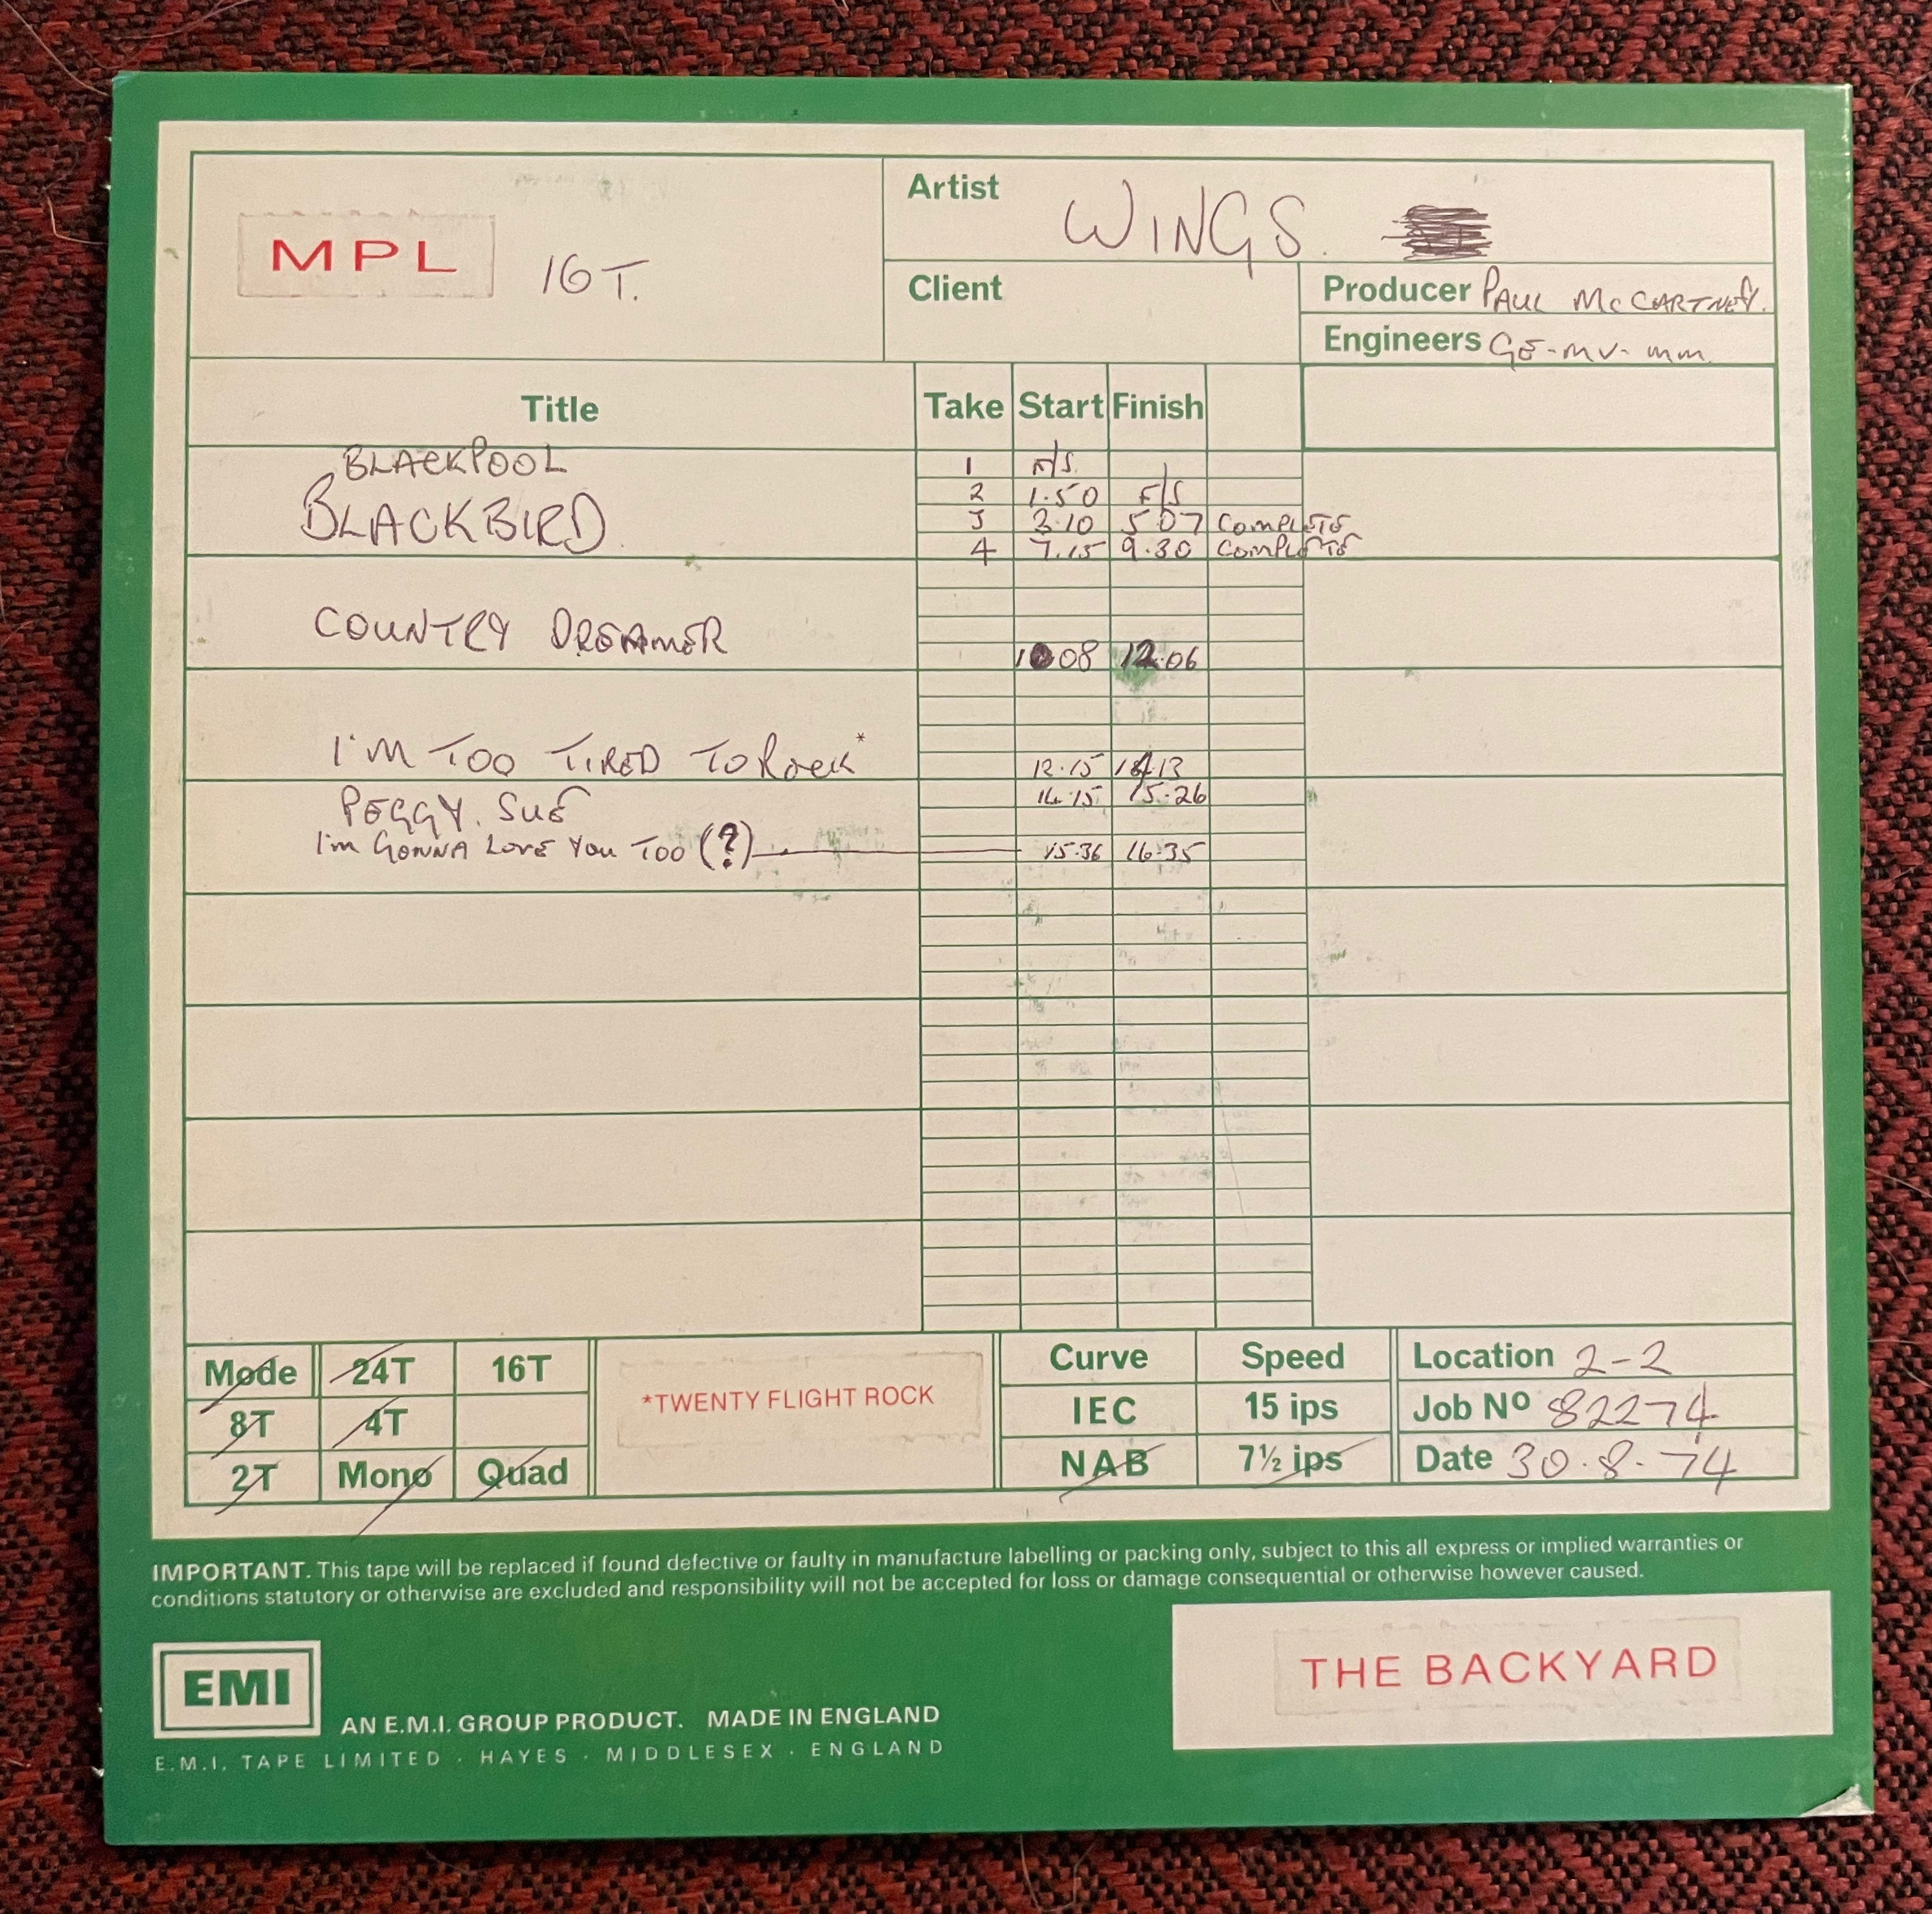 MPL 16T.
Artist WINGS.
Client
Producer PAUL McCARTNEY.
Engineers GE-MV-MM.
Title Take Start Finish
BLACKPOOL 1 F/S.
BLACKBIRD 2 1.50 F/S
3 3.10 5.07 COMPLETE
4 7.15 9.30 COMPLETE
COUNTRY DREAMER 10 08 12.06
I'M TOO TIRED TO Rock* 12.15 14.13
PEGGY. SUE 14.15 15.26
I'm GONNA LOVE YOU TOO (?) 15.36 16.35
Mode 24T 16T
8T 4T
2T Mono Quad
*TWENTY FLIGHT ROCK
Curve Speed
IEC 15 ips
NAB 7½ ips
Location 2-2
Job Nº 82274
Date 30.8.74
IMPORTANT. This tape will be replaced if found defective or faulty in manufacture labelling or packing only, subject to this all express or implied warranties or
conditions statutory or otherwise are excluded and responsibility will not be accepted for loss or damage consequential or otherwise however caused.
EMI
AN E.M.I. GROUP PRODUCT. MADE IN ENGLAND
E.M.I. TAPE LIMITED · HAYES · MIDDLESEX · ENGLAND
THE BACKYARD